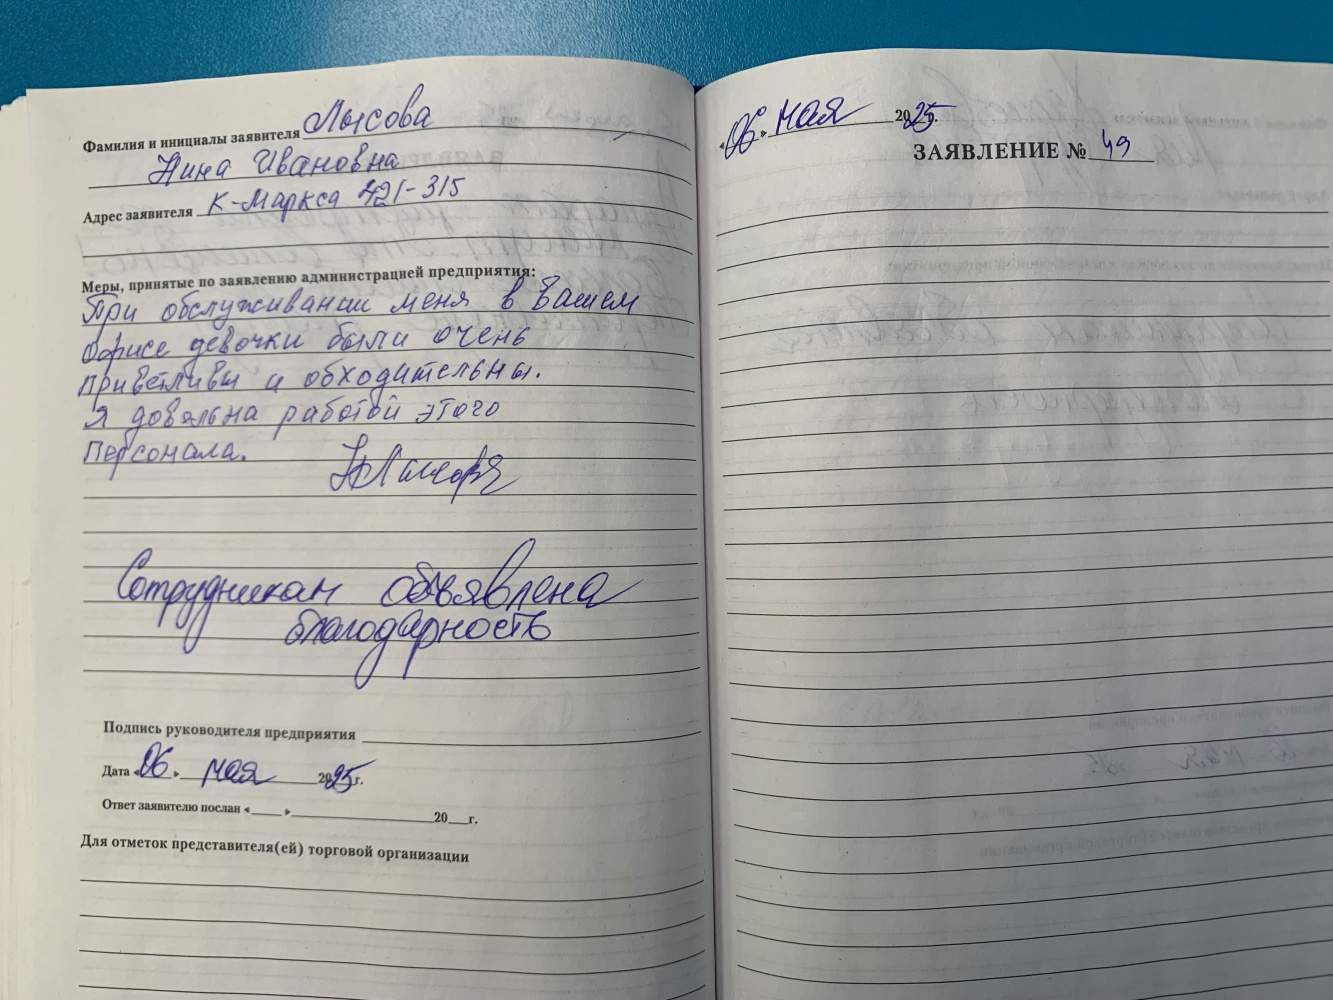 Фамилия и инициалы заявителя Лысова
Нина Ивановна
Адрес заявителя К-Маркса 421-315
Меры, принятые по заявлению администрацией предприятия:
При обслуживании меня в Вашем
офисе девочки были очень
приветливы и обходительны.
Я довольна работой этого
персонала.
НЛысова
Сотрудникам объявлена
благодарность
Подпись руководителя предприятия
Дата «06» мая 2025г.
Ответ заявителю послан « » 20 г.
Для отметок представителя(ей) торговой организации
«06» мая 2025г.
ЗАЯВЛЕНИЕ № 49